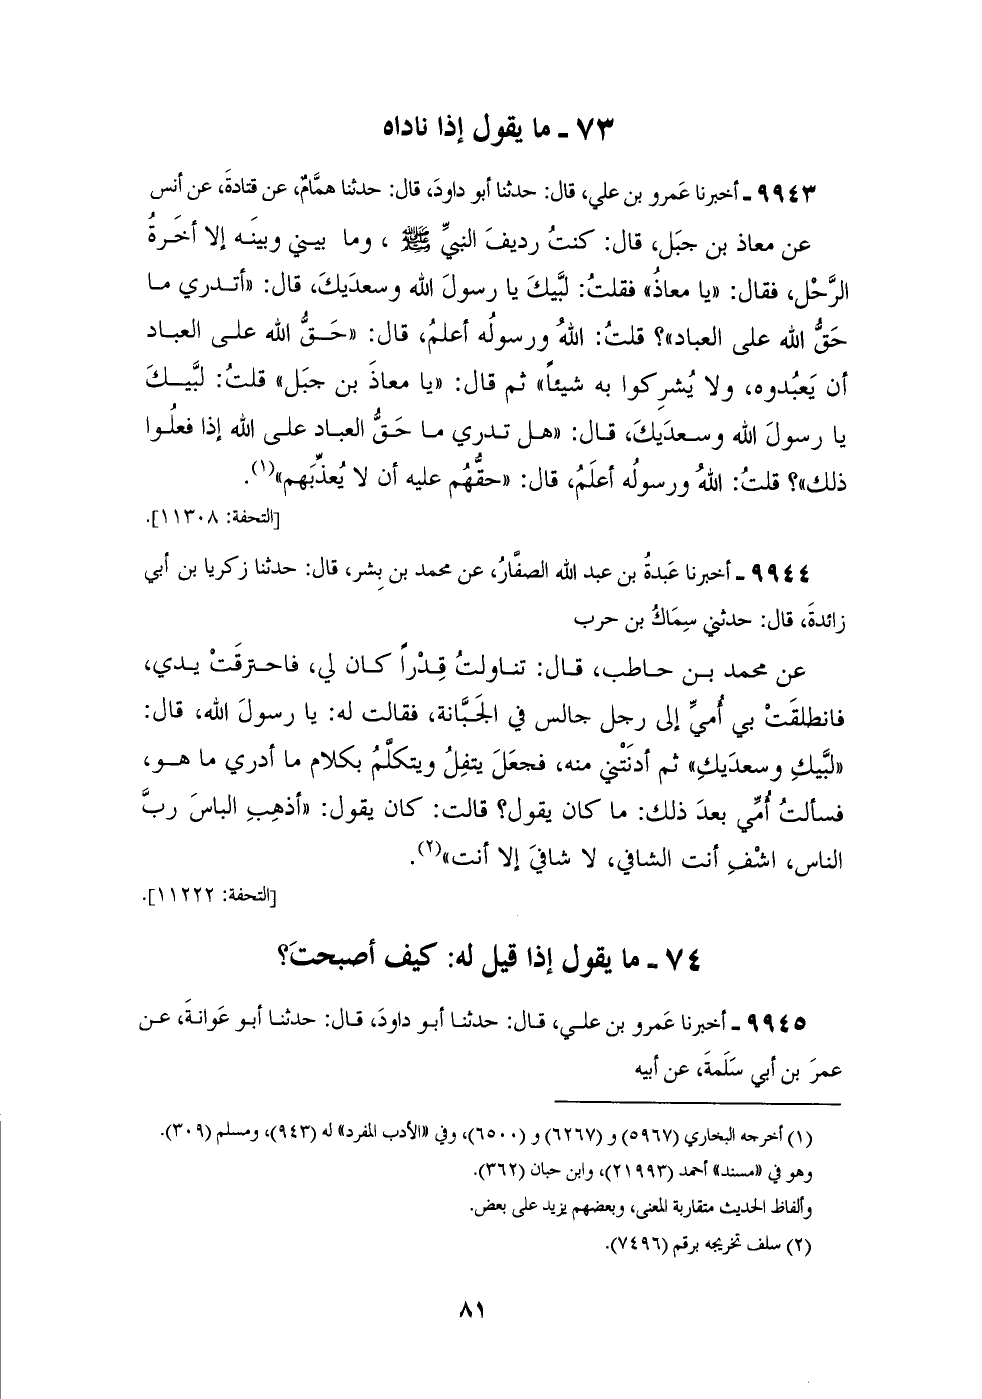 ٧٣ ـ ما يقول إذا ناداه
٩٩٤٣ ـ أخبرنا عَمرو بن علي، قال: حدثنا أبو داودَ، قال: حدثنا همَّامٌ، عن قتادةَ، عن أنس
عن معاذ بن جبَل، قال: كنتُ رديفَ النبيِّ ﷺ ، وما بيني وبينَه إلا أَخَرةُ
الرَّحْل، فقال: «يا معاذُ» فقلتُ: لبَّيكَ يا رسولَ الله وسعدَيكَ، قال: «أتدري ما
حَقُّ الله على العباد»؟ قلتُ: اللهُ ورسولُه أعلمُ، قال: «حَقُّ الله على العباد
أن يَعبُدوه، ولا يُشرِكوا به شيئاً» ثم قال: «يا معاذَ بن جبَل» قلتُ: لبَّيكَ
يا رسولَ الله وسعدَيكَ، قال: «هل تدري ما حَقُّ العباد على الله إذا فعلُوا
ذلك»؟ قلتُ: اللهُ ورسولُه أعلَمُ، قال: «حقُّهُم عليه أن لا يُعذِّبَهم»(١).
[التحفة: ١١٣٠٨].
٩٩٤٤ ـ أخبرنا عَبدةُ بن عبد الله الصفَّارُ، عن محمد بن بِشر، قال: حدثنا زكريا بن أبي
زائدةَ، قال: حدثني سِمَاكُ بن حرب
عن محمد بن حاطب، قال: تناولتُ قِدْراً كان لي، فاحترقَتْ يدي،
فانطلقَتْ بي أُميِّ إلى رجل جالس في الجَبَّانة، فقالت له: يا رسولَ الله، قال:
«لبَّيكِ وسعدَيكِ» ثم أدنَتْني منه، فجعَلَ يتفِلُ ويتكلَّمُ بكلام ما أدري ما هو،
فسألتُ أُمِّي بعدَ ذلك: ما كان يقول؟ قالت: كان يقول: «أذهِبِ الباسَ ربَّ
الناس، اشْفِ أنت الشافي، لا شافيَ إلا أنت»(٢).
[التحفة: ١١٢٢٢].
٧٤ ـ ما يقول إذا قيل له: كيف أصبحتَ؟
٩٩٤٥ ـ أخبرنا عَمرو بن علي، قال: حدثنا أبو داودَ، قال: حدثنا أبو عَوانةَ، عن
عمرَ بن أبي سَلَمةَ، عن أبيه
(١) أخرجه البخاري (٥٩٦٧) و (٦٢٦٧) و (٦٥٠٠)، وفي «الأدب المفرد» له (٩٤٣)، ومسلم (٣٠٩).
وهو في «مسند» أحمد (٢١٩٩٣)، وابن حبان (٣٦٢).
وألفاظ الحديث متقاربة المعنى، وبعضهم يزيد على بعض.
(٢) سلف تخريجه برقم (٧٤٩٦).
٨١